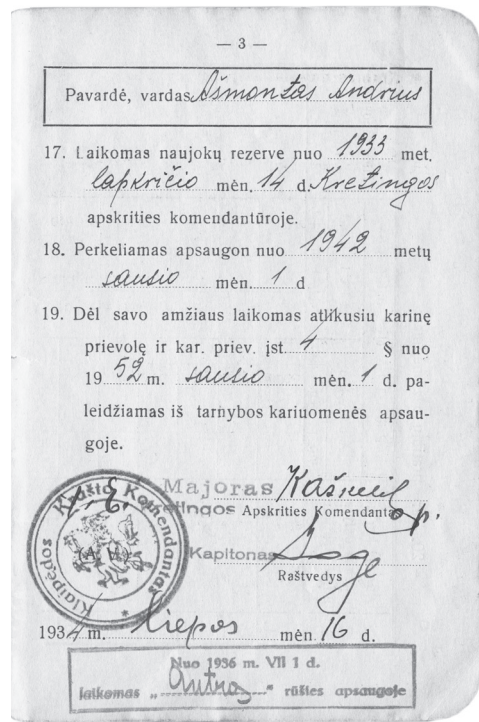 — 3 —
Pavardė, vardas Ašmontas Andrius
17. Laikomas naujokų rezerve nuo 1933 met.
lapkričio mėn. 14 d. Kretingos
apskrities komendantūroje.
18. Perkeliamas apsaugon nuo 1942 metų
sausio mėn. 1 d
19. Dėl savo amžiaus laikomas atlikusiu karinę
prievolę ir kar. priev. įst. 4 § nuo
1952 m. sausio mėn. 1 d. pa-
leidžiamas iš tarnybos kariuomenės apsau-
goje.
Majoras
tingos Apskrities Komendantas
Klaipėdos Krašto Komendantas
(A. V.)
Kapitonas
Raštvedys
1934 m. liepos mėn. 16 d.
Nuo 1936 m. VII 1 d.
laikomas „Antros" rūšies apsaugoje